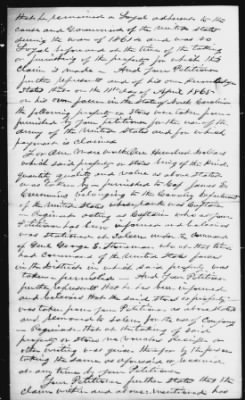 that he remained a Loyal adherent to the
cause and Government of the United States
during the War of 1861 and was so
Loyal before and at the time of the taking
or furnishing of the property for which this
claim is made — And your Petitioner
further represents and of his own knowledge
States that on the 11th day of April 1865
on his own farm in the State of North Carolina
the following property or stores was taken from
furnished by your Petitioner for the use of the
army of the United States and for which
payment is claimed
For One worth One Hundred dollars
which said property or stores being of the kind,
quantity, quality and value as above stated
was taken by or furnished to Capt James
belonging to the Department
of the United States whose rank was Captain
Regiment acting as Captain who as your
Petitioner has been informed and believes
was Stationed at Salem under command
of Genl George Stoneman who at that time
had Command of the United States forces
in the District in which said property was
taken or furnished — And your Petitioner
further represents that he has been informed
and believes that the said stores or property
was taken from your Petitioner as above stated
and removed to Salem for the use of Company
Regiment that at the taking of said
property or stores no Voucher Receipt or
other writing was given therefor by the person
taking the same as aforesaid or received
at any time by your Petitioner
Your Petitioner further states that the
claim within and above mentioned has